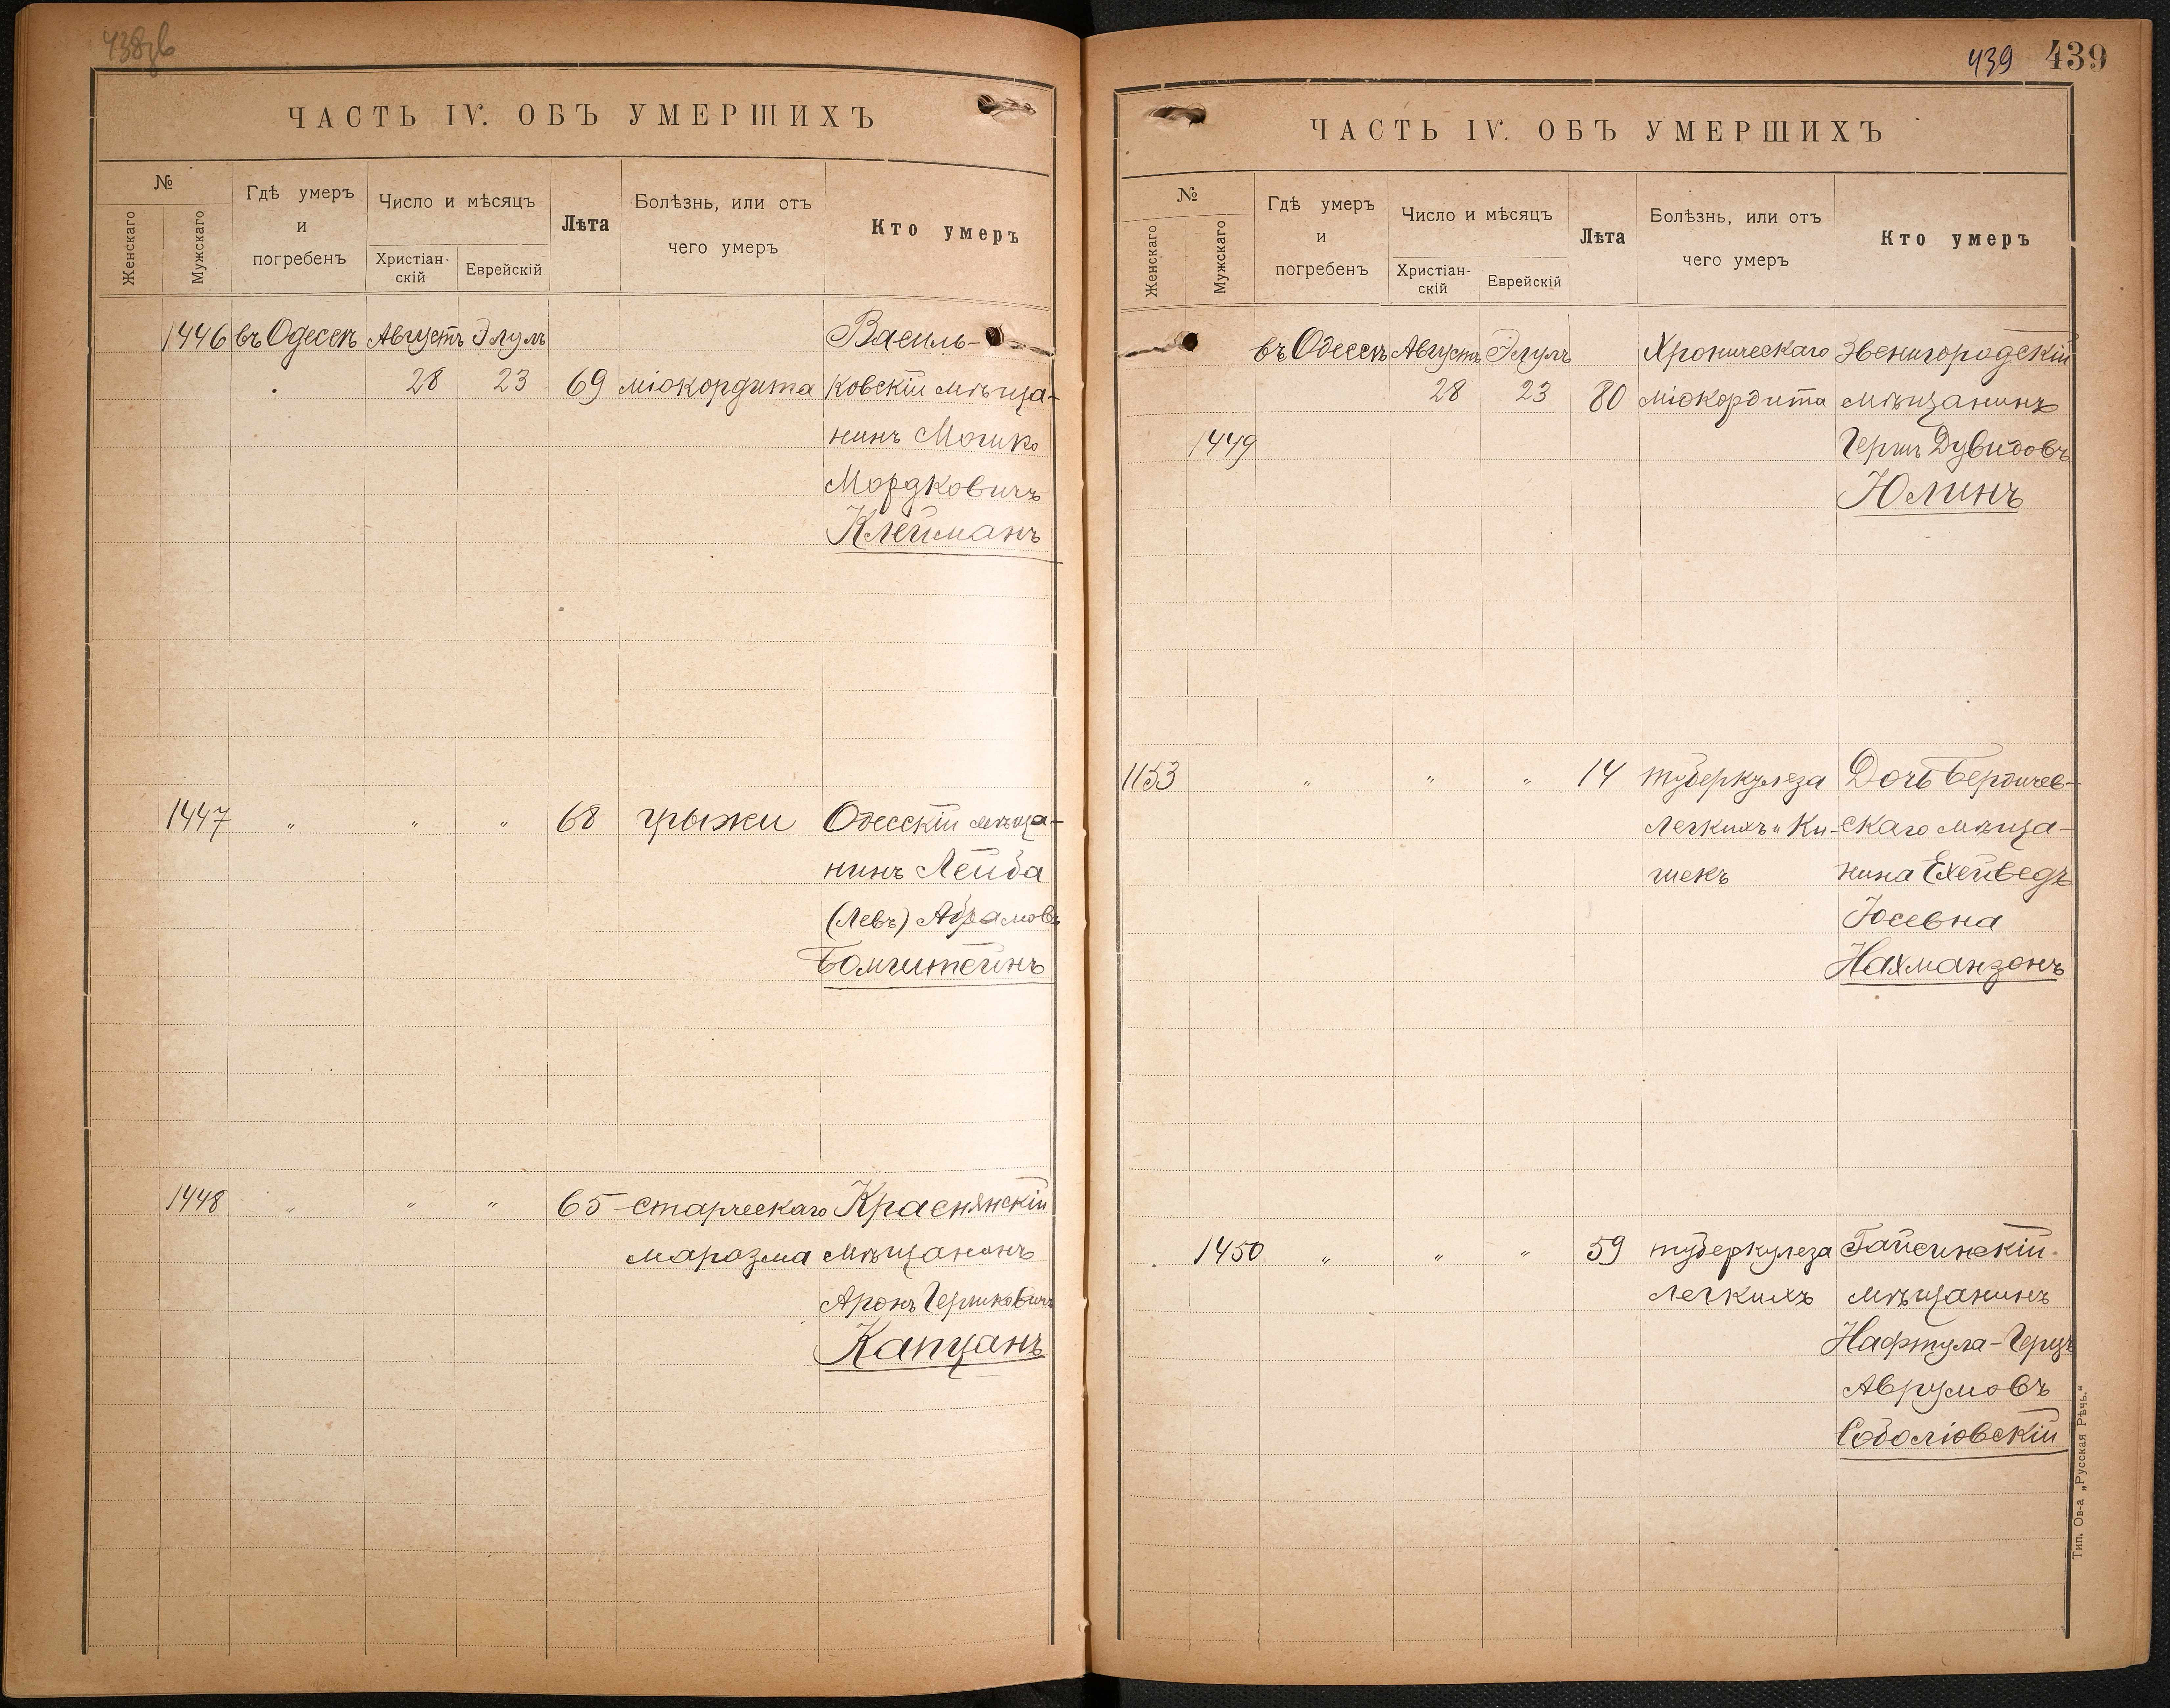 438об
ЧАСТЬ IV. ОБЪ УМЕРШИХЪ
№
Женскаго
Мужскаго
Гдѣ умеръ
и
погребенъ
Число и мѣсяцъ
Христіан-
скій
Еврейскій
Лѣта
Болѣзнь, или отъ
чего умеръ
Кто умеръ
1446 въ Одессѣ Августъ Элулъ Василь-
28 23 69 міокордита ковскій мѣща-
нинъ Мошко
Мордковичъ
Клейманъ
1447 " " " 68 грыжи Одесскій мѣща-
нинъ Лейба
(Левъ) Абрамовъ
Бомштейнъ
1448 " " " 65 старческаго Краснянскій
маразма мѣщанинъ
Аронъ Гершковичъ
Капцанъ
439 439
ЧАСТЬ IV. ОБЪ УМЕРШИХЪ
№
Женскаго
Мужскаго
Гдѣ умеръ
и
погребенъ
Число и мѣсяцъ
Христіан-
скій
Еврейскій
Лѣта
Болѣзнь, или отъ
чего умеръ
Кто умеръ
въ Одессѣ Августъ Элулъ Хроническаго Звенигородскій
28 23 80 міокордита мѣщанинъ
1449 Гершъ Дувидовъ
Юлинъ
1153 " " " 14 туберкулеза Дочь Бердичев-
легкихъ и ки- скаго мѣща-
шекъ нина Ехейведъ
Іосевна
Нахманзонъ
1450 " " " 59 туберкулеза Гайсинскій
легкихъ мѣщанинъ
Нафтула-Герцъ
Аврумовъ
Соболіовскій
Тип. Ов-а „Русская Рѣчь.“